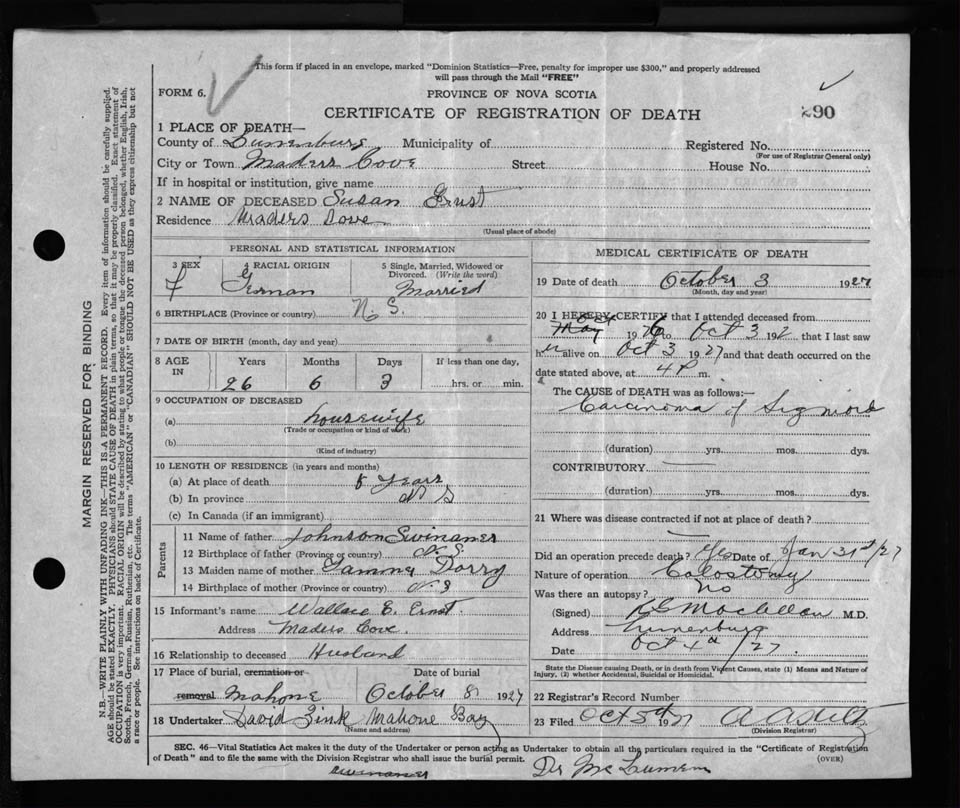 This form if placed in an envelope, marked "Dominion Statistics—Free, penalty for improper use $300," and properly addressed
will pass through the Mail "FREE"
FORM 6.
PROVINCE OF NOVA SCOTIA
290
CERTIFICATE OF REGISTRATION OF DEATH
1 PLACE OF DEATH—
County of Lunenburg Municipality of Registered No.
(For use of Registrar General only)
City or Town Maders Cove Street House No.
If in hospital or institution, give name
2 NAME OF DECEASED Susan Ernst
Residence Maders Cove
(Usual place of abode)
PERSONAL AND STATISTICAL INFORMATION
3 SEX 4 RACIAL ORIGIN 5 Single, Married, Widowed or Divorced. (Write the word)
f German Married
6 BIRTHPLACE (Province or country) N. S.
7 DATE OF BIRTH (month, day and year)
8 AGE IN Years Months Days If less than one day,
26 6 3 hrs. or min.
9 OCCUPATION OF DECEASED
(a) housewife
(Trade or occupation or kind of work)
(b)
(Kind of industry)
10 LENGTH OF RESIDENCE (in years and months)
(a) At place of death years
(b) In province N S
(c) In Canada (if an immigrant)
Parents
11 Name of father Johnson Swinamer
12 Birthplace of father (Province or country) N. S.
13 Maiden name of mother Dorry
14 Birthplace of mother (Province or country) N. S
15 Informant's name Wallace E. Ernst
Address Maders Cove.
16 Relationship to deceased Husband
17 Place of burial, cremation or removal Date of burial
Mahone October 8, 1927
18 Undertaker David Zink Mahone Bay
(Name and address)
MEDICAL CERTIFICATE OF DEATH
19 Date of death October 3 1927
(Month, day and year)
20 I HEREBY CERTIFY that I attended deceased from
May Oct 1926 to Oct 3 192 that I last saw
her alive on Oct 3 1927 and that death occurred on the
date stated above, at 4 P m.
The CAUSE of DEATH was as follows:—
Carcinoma of Sigmoid
(duration) yrs. mos. dys.
CONTRIBUTORY
(duration) yrs. mos. dys.
21 Where was disease contracted if not at place of death?
Did an operation precede death? Yes Date of Jan 31st/27
Nature of operation Colostomy
Was there an autopsy? No
(Signed) Maclellan M.D.
Address Lunenburg
Date Oct 4th /27
State the Disease causing Death, or in death from Violent Causes, state (1) Means and Nature of
Injury, (2) whether Accidental, Suicidal or Homicidal.
22 Registrar's Record Number
23 Filed Oct 5th 1927
(Division Registrar)
SEC. 46—Vital Statistics Act makes it the duty of the Undertaker or person acting as Undertaker to obtain all the particulars required in the "Certificate of Registration
of Death" and to file the same with the Division Registrar who shall issue the burial permit.
(OVER)
swinamer
MARGIN RESERVED FOR BINDING
N.B.—WRITE PLAINLY WITH UNFADING INK—THIS IS A PERMANENT RECORD. Every item of information should be carefully supplied.
AGE should be stated EXACTLY. PHYSICIANS should STATE CAUSE OF DEATH in plain terms, so that it may be properly classified. Exact statement of
OCCUPATION is very important. RACIAL ORIGIN will be described by stating to what people or tongue the deceased person belonged, whether English, Irish,
Scotch, French, German, Russian, Ruthenian, etc. The terms "AMERICAN" or "CANADIAN" SHOULD NOT BE USED as they express citizenship but not
a race or people. See instructions on back of Certificate.